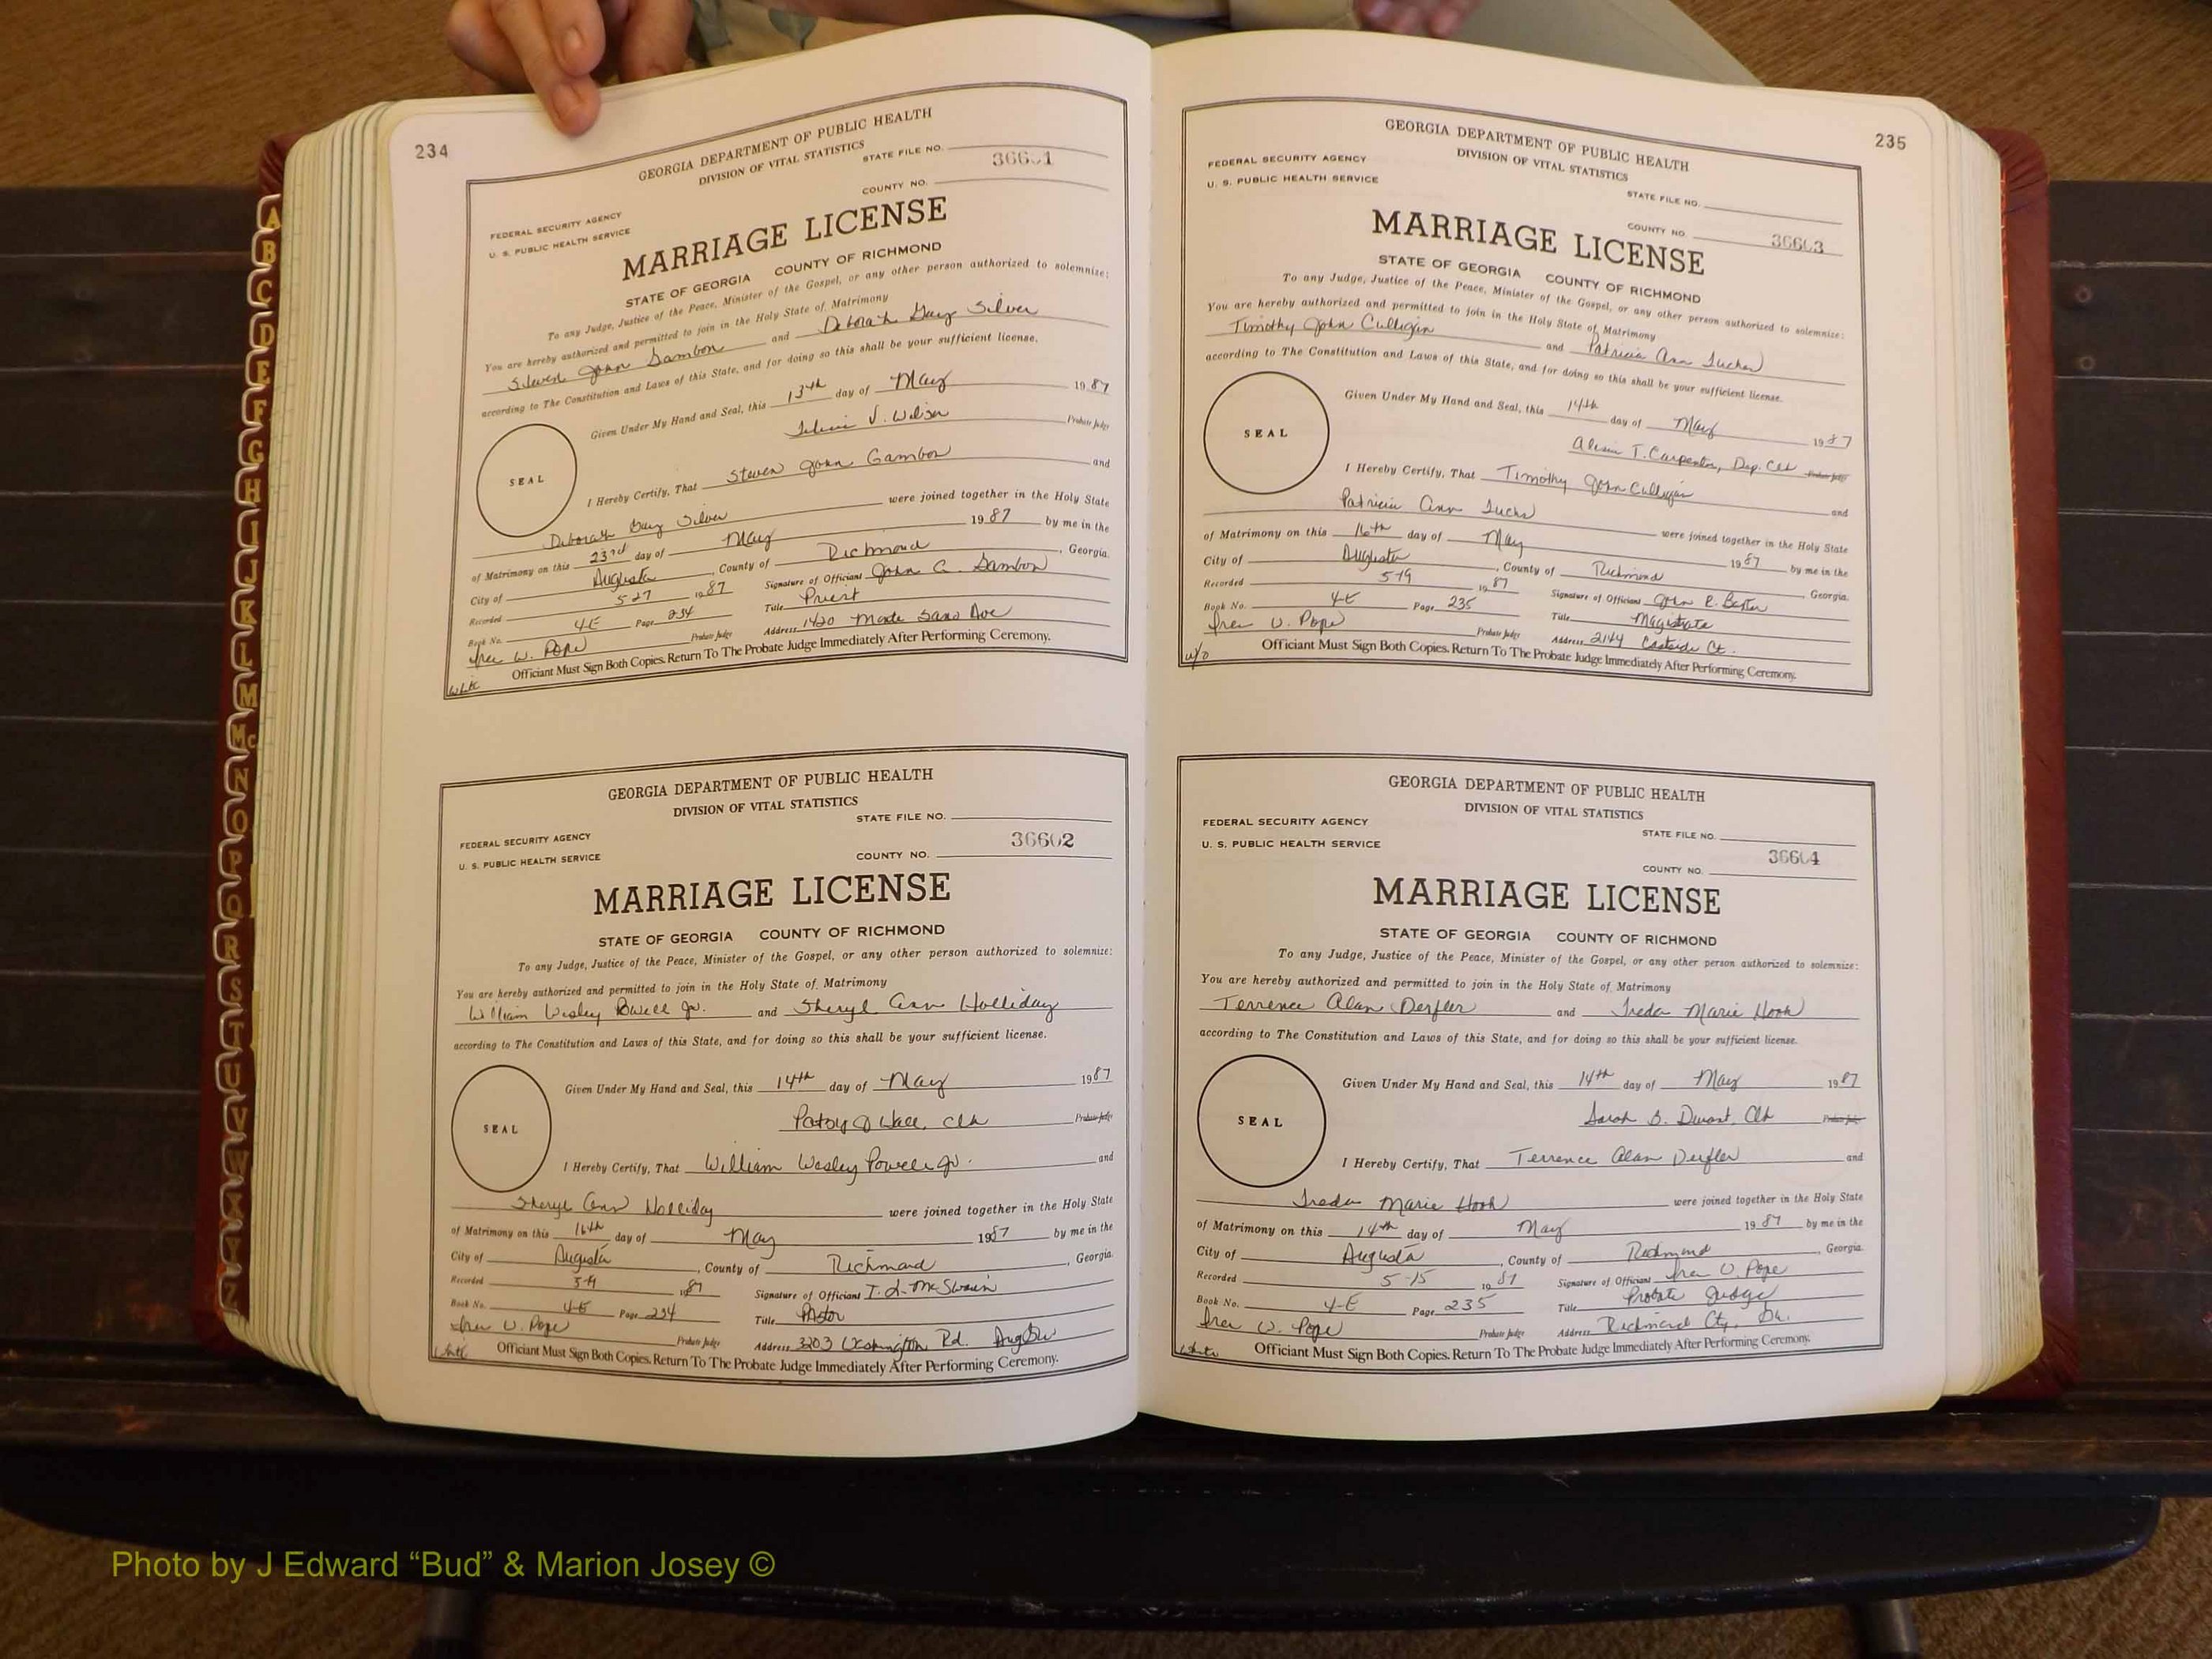 234
GEORGIA DEPARTMENT OF PUBLIC HEALTH
DIVISION OF VITAL STATISTICS
STATE FILE NO.
36601
COUNTY NO.
FEDERAL SECURITY AGENCY
U. S. PUBLIC HEALTH SERVICE
MARRIAGE LICENSE
STATE OF GEORGIA COUNTY OF RICHMOND
To any Judge, Justice of the Peace, Minister of the Gospel, or any other person authorized to solemnize:
You are hereby authorized and permitted to join in the Holy State of Matrimony
Steven John Gambon and Deborah Gay Silver
according to The Constitution and Laws of this State, and for doing so this shall be your sufficient license.
Given Under My Hand and Seal, this 13th day of May 1987
V. Wilson Probate Judge
SEAL
I Hereby Certify, That Steven John Gambon and
Deborah Gay Silver were joined together in the Holy State
of Matrimony on this 23rd day of May 1987 by me in the
City of Augusta, County of Richmond, Georgia.
Recorded 5-27 1987 Signature of Officiant John C. Gambon
Book No. 4-E Page 234 Title Priest
W. Pope Probate Judge Address 1420 Monte Sano Ave
Officiant Must Sign Both Copies. Return To The Probate Judge Immediately After Performing Ceremony.
White
GEORGIA DEPARTMENT OF PUBLIC HEALTH
DIVISION OF VITAL STATISTICS
STATE FILE NO.
FEDERAL SECURITY AGENCY
36602
U. S. PUBLIC HEALTH SERVICE
COUNTY NO.
MARRIAGE LICENSE
STATE OF GEORGIA COUNTY OF RICHMOND
To any Judge, Justice of the Peace, Minister of the Gospel, or any other person authorized to solemnize:
You are hereby authorized and permitted to join in the Holy State of Matrimony
William Wesley Powell Jr. and Sheryl Ann Holliday
according to The Constitution and Laws of this State, and for doing so this shall be your sufficient license.
Given Under My Hand and Seal, this 14th day of May 1987
Patsy J Wall, Clk Probate Judge
SEAL
I Hereby Certify, That William Wesley Powell Jr. and
Sheryl Ann Holliday were joined together in the Holy State
of Matrimony on this 16th day of May 1987 by me in the
City of Augusta, County of Richmond, Georgia.
Recorded 1987 Signature of Officiant T. L. McSwain
Book No. 4-E Page 234 Title Pastor
W. Pope Probate Judge Address 3203 Washington Rd. Augusta
Officiant Must Sign Both Copies. Return To The Probate Judge Immediately After Performing Ceremony.
White
235
GEORGIA DEPARTMENT OF PUBLIC HEALTH
DIVISION OF VITAL STATISTICS
FEDERAL SECURITY AGENCY
U. S. PUBLIC HEALTH SERVICE
STATE FILE NO.
COUNTY NO. 36603
MARRIAGE LICENSE
STATE OF GEORGIA COUNTY OF RICHMOND
To any Judge, Justice of the Peace, Minister of the Gospel, or any other person authorized to solemnize:
You are hereby authorized and permitted to join in the Holy State of Matrimony
Timothy John Culligan and Patricia Ann
according to The Constitution and Laws of this State, and for doing so this shall be your sufficient license.
Given Under My Hand and Seal, this 14th day of May 1987
T. Carpenter, Dep. Clk Probate Judge
SEAL
I Hereby Certify, That Timothy John Culligan and
Patricia Ann were joined together in the Holy State
of Matrimony on this 16th day of May 1987 by me in the
City of Augusta, County of Richmond, Georgia.
Recorded 5-19 1987 Signature of Officiant John R. Baxter
Book No. 4-E Page 235 Title Magistrate
W. Pope Probate Judge Address 2144 Eastside Ct.
Officiant Must Sign Both Copies. Return To The Probate Judge Immediately After Performing Ceremony.
GEORGIA DEPARTMENT OF PUBLIC HEALTH
DIVISION OF VITAL STATISTICS
FEDERAL SECURITY AGENCY
STATE FILE NO.
U. S. PUBLIC HEALTH SERVICE
36604
COUNTY NO.
MARRIAGE LICENSE
STATE OF GEORGIA COUNTY OF RICHMOND
To any Judge, Justice of the Peace, Minister of the Gospel, or any other person authorized to solemnize:
You are hereby authorized and permitted to join in the Holy State of Matrimony
Terrence Alan Derfler and Freda Marie Hook
according to The Constitution and Laws of this State, and for doing so this shall be your sufficient license.
Given Under My Hand and Seal, this 14th day of May 1987
Sarah B. Clk Probate Judge
SEAL
I Hereby Certify, That Terrence Alan Derfler and
Freda Marie Hook were joined together in the Holy State
of Matrimony on this 14th day of May 1987 by me in the
City of Augusta, County of Richmond, Georgia.
Recorded 5-15 1987 Signature of Officiant W. Pope
Book No. 4-E Page 235 Title Probate Judge
W. Pope Probate Judge Address Richmond Cty, Ga.
Officiant Must Sign Both Copies. Return To The Probate Judge Immediately After Performing Ceremony.
White
A
B
C
D
E
F
G
H
I
J
K
L
M
Mc
N
O
P
Q
R
S
T
U
V
W
X
Y
Z
Photo by J Edward “Bud” & Marion Josey ©